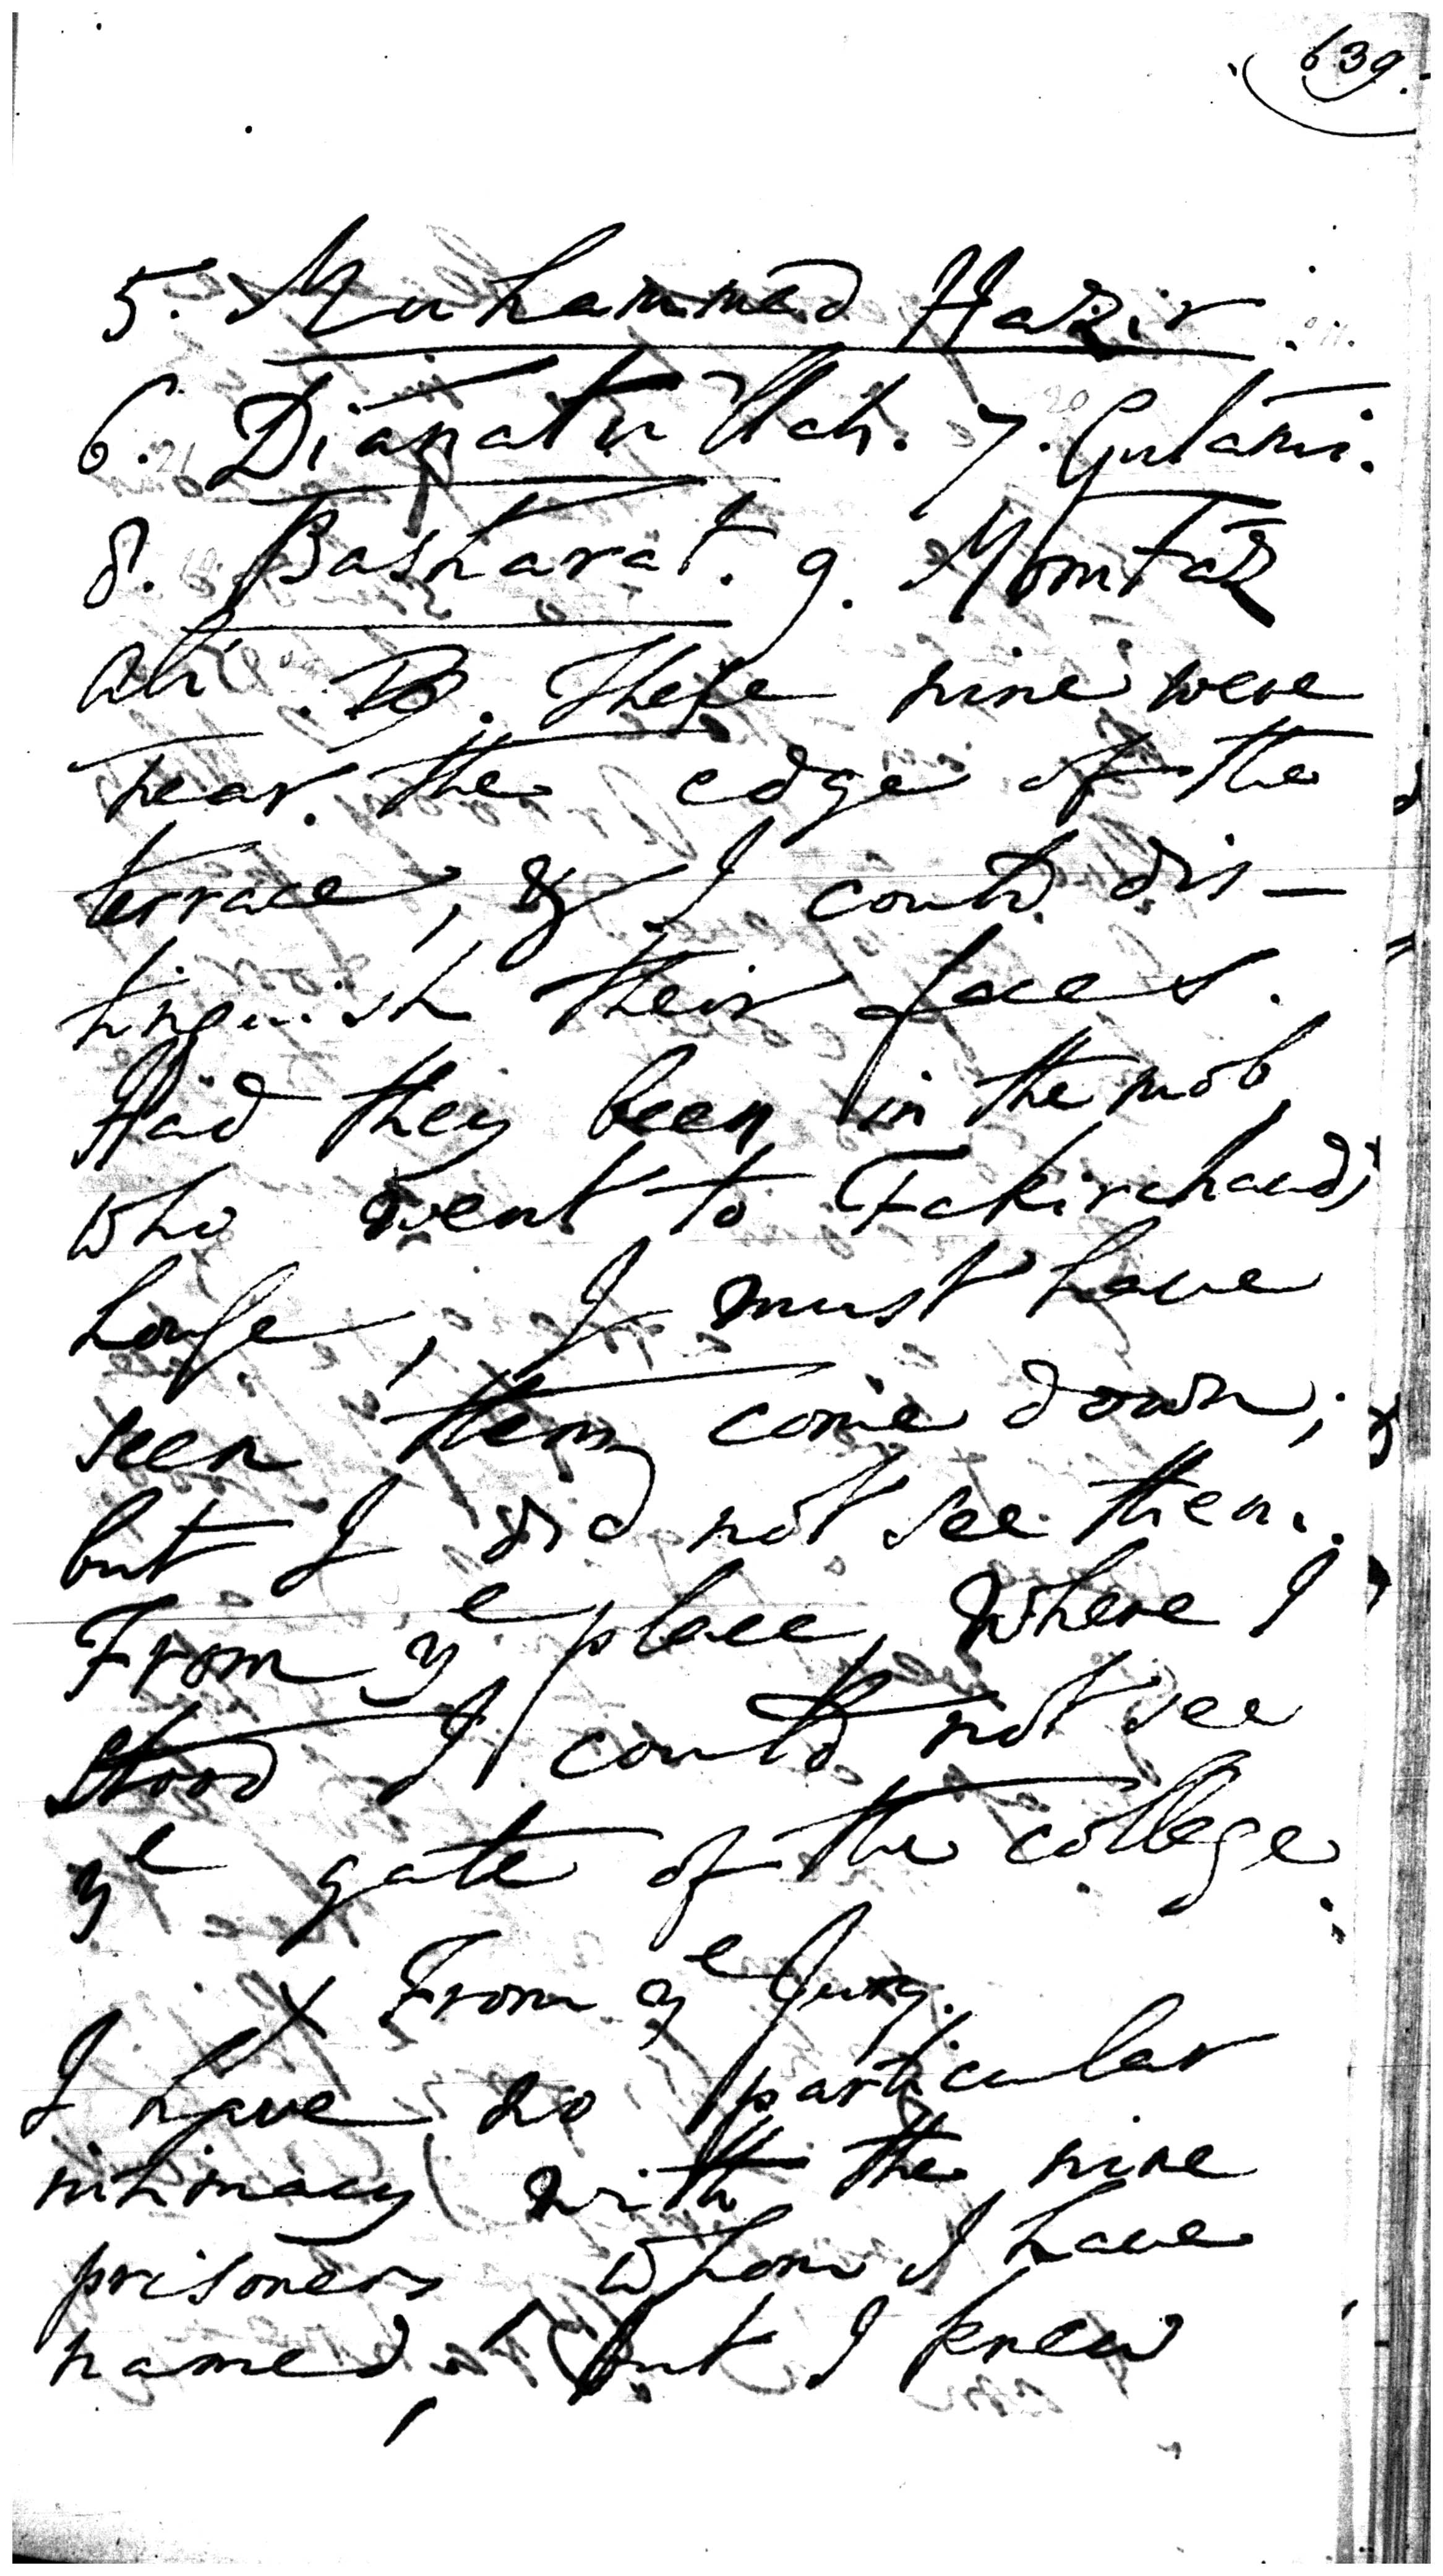 639.
5. Muhammed Hazir.
6. Dianatullah. 7. Gulami.
8. Basharat. 9. Momtaz
Ali. These nine were
near the edge of the
terrace, & I could dis-
tinguish their faces.
Had they been in the mob,
who went to Fakirchand's
house, I must have
seen them come down;
but I did not see them.
From ye place, where I
stood I could not see
ye gate of the college.
X From ye Jury.
I have no particular
intimacy with the nine
prisoners whom I have
named, but I knew